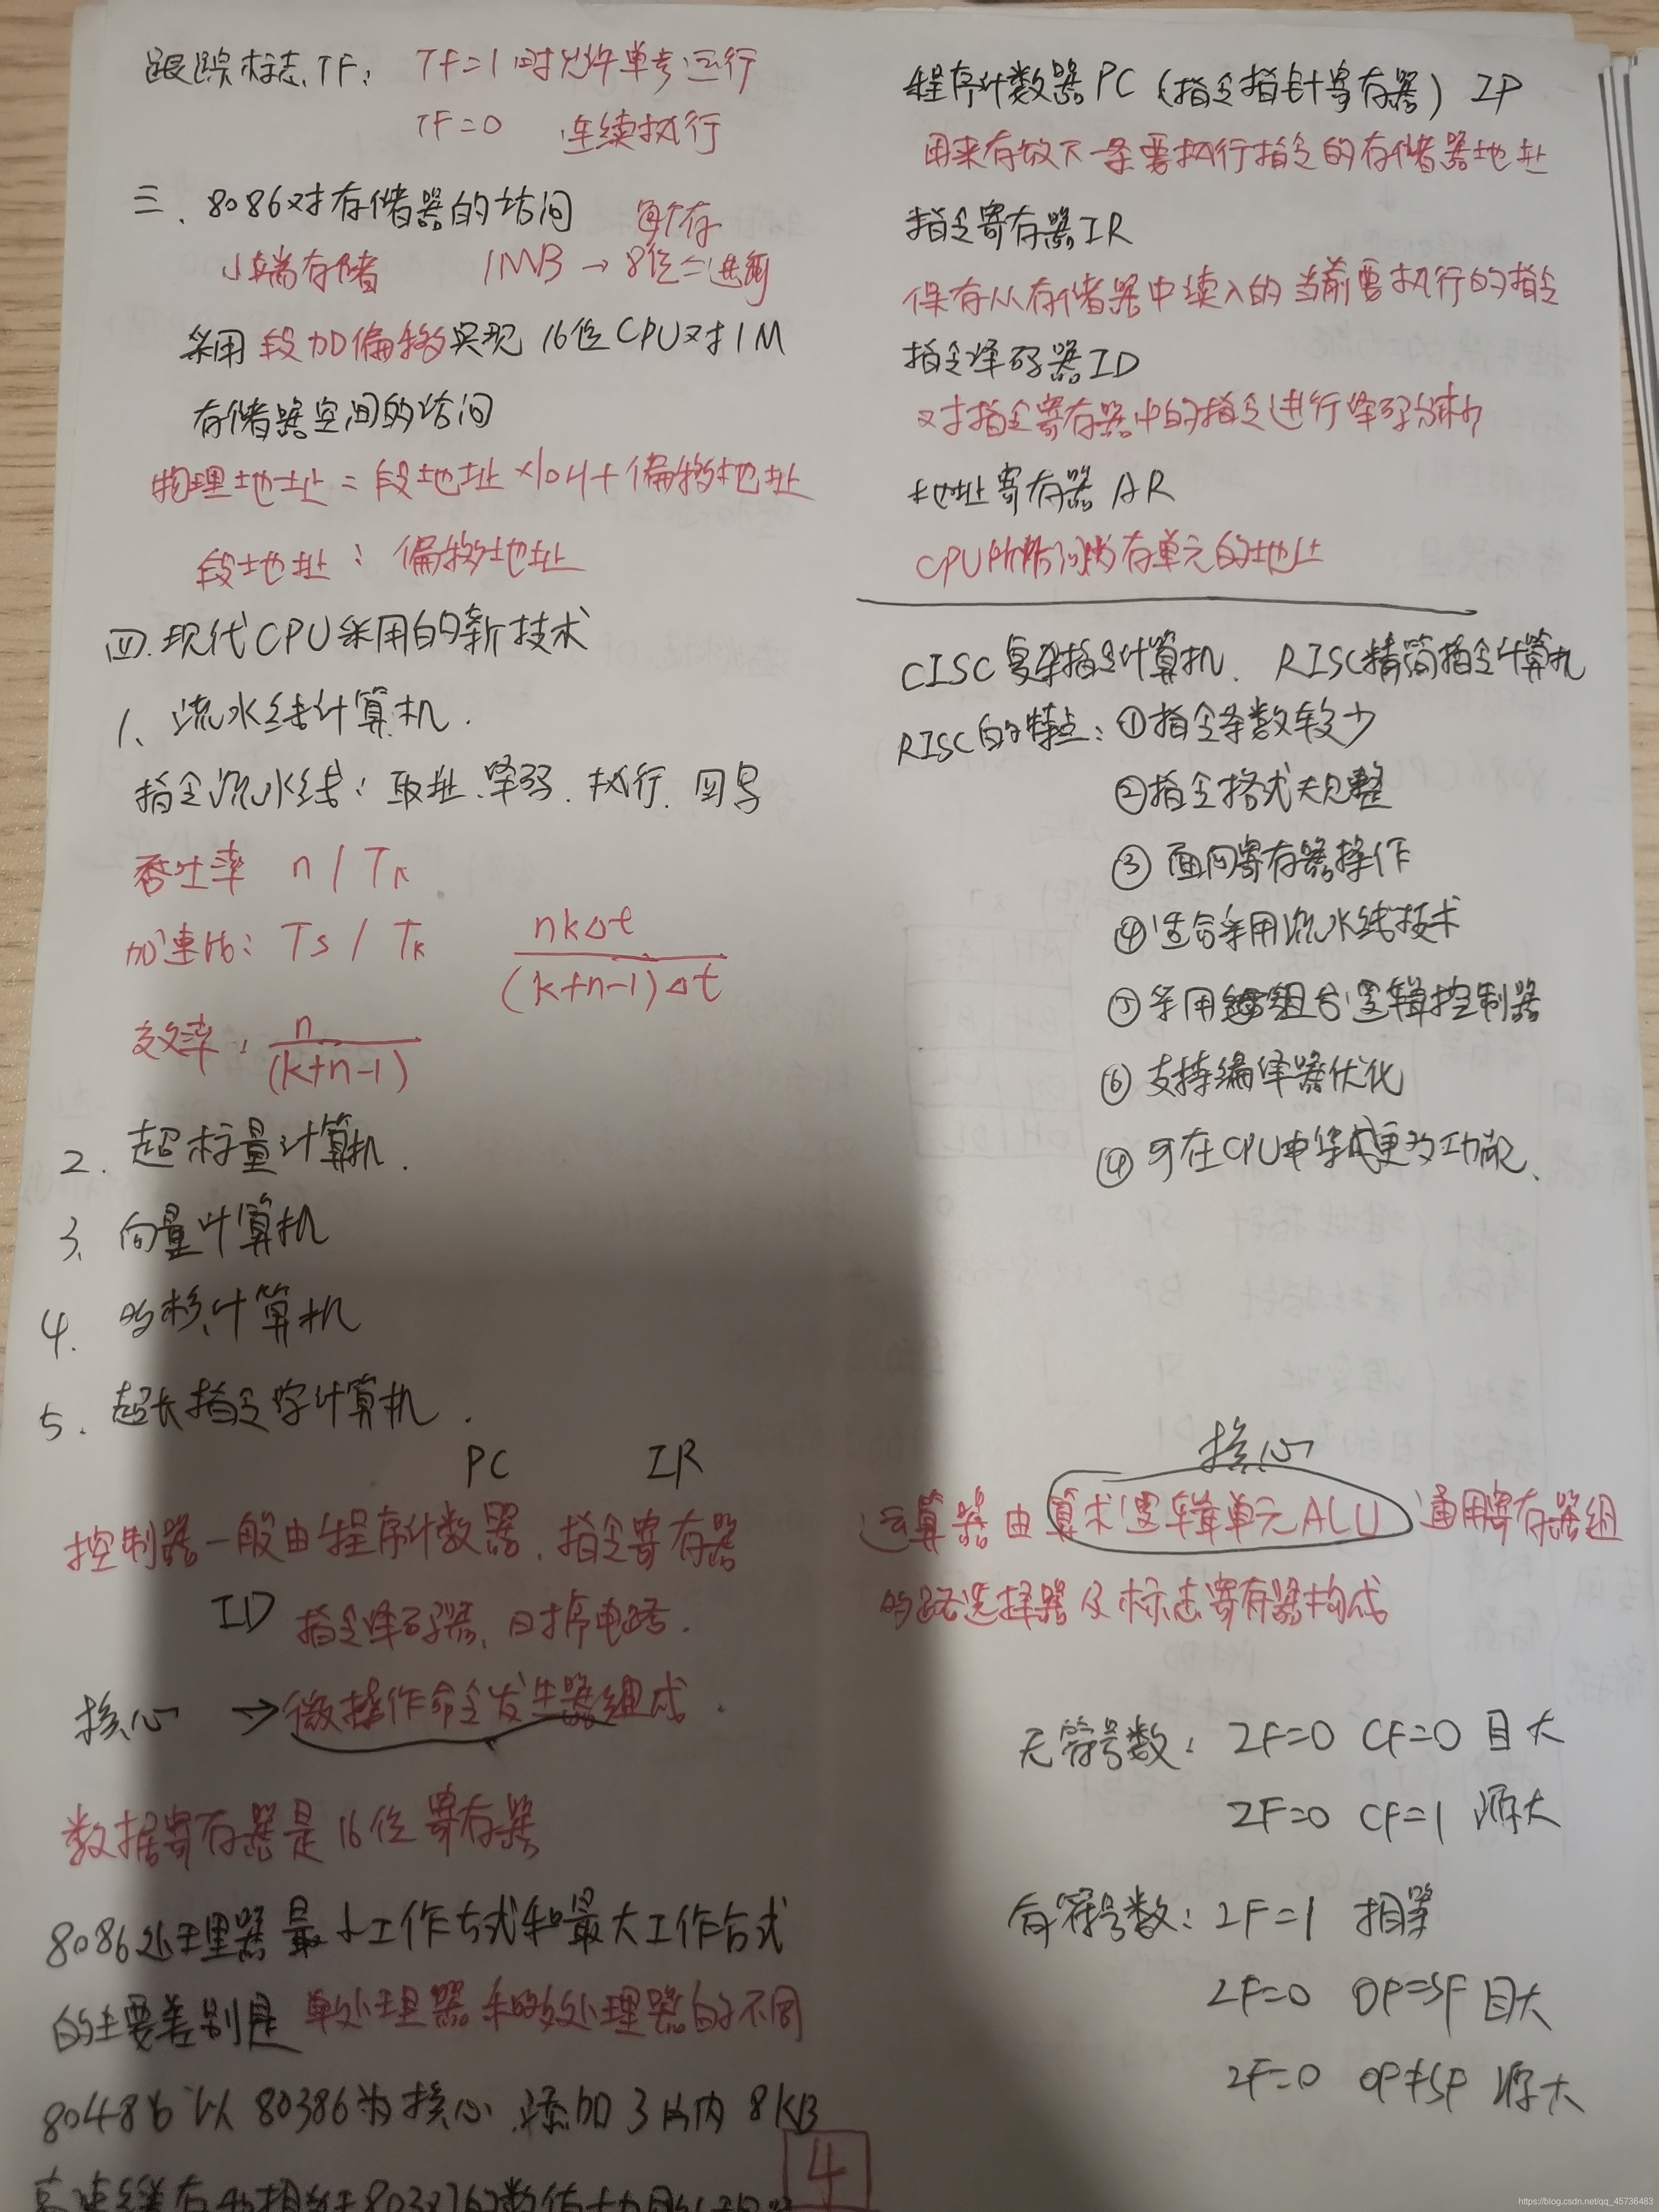 跟踪标志TF: TF=1时允许单步运行
TF=0 连续执行
三、8086对存储器的访问 每个存
小端存储 1MB→8位二进制
采用段加偏移实现16位CPU对1M
存储器空间的访问
物理地址=段地址×10H+偏移地址
段地址:偏移地址
四.现代CPU采用的新技术
1、流水线计算机.
指令流水线:取址.译码.执行.回写
吞吐率 n/Tk
加速比:Ts/Tk nkΔt/(k+n-1)Δt
效率: n/(k+n-1)
2.超标量计算机.
3.向量计算机
4.多核计算机
5.超长指令字计算机.
PC IR
控制器一般由程序计数器.指令寄存器
ID 指令译码器、时序电路.
核心→微操作命令发生器组成.
数据寄存器是16位寄存器
8086处理器最小工作方式和最大工作方式
的主要差别是 单处理器和多处理器的不同
80486以80386为核心,添加3片内8KB
高速缓存
4
程序计数器PC(指令指针寄存器)IP
用来存放下一条要执行指令的存储器地址
指令寄存器IR
保存从存储器中读入的当前要执行的指令
指令译码器ID
对指令寄存器中的指令进行译码分析
地址寄存器AR
CPU所访问内存单元的地址
CISC复杂指令计算机、RISC精简指令计算机
RISC的特点:①指令条数较少
②指令格式规整
③面向寄存器操作
④适合采用流水线技术
⑤采用组合逻辑控制器
⑥支持编译器优化
④可在CPU中集成更多功能、
核心
运算器由算术逻辑单元ALU 通用寄存器组
多路选择器及标志寄存器构成
无符号数:ZF=0 CF=0 目大
ZF=0 CF=1 源大
有符号数:ZF=1 相等
ZF=0 OF=SF 目大
ZF=0 OF≠SF 源大
https://blog.csdn.net/qq_45736483